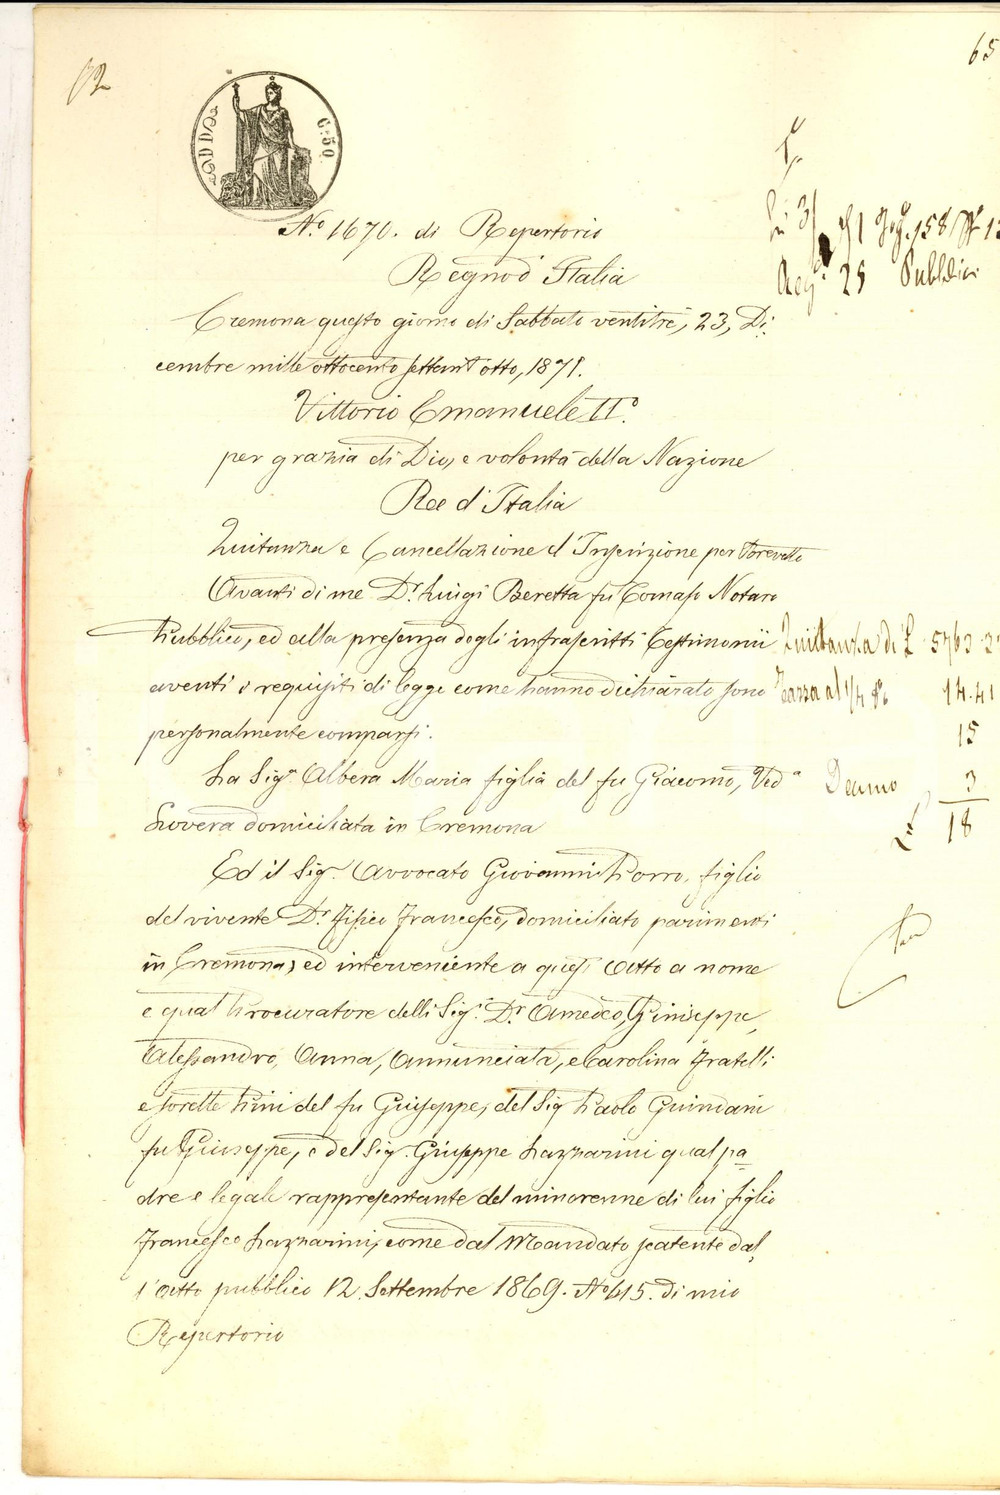 65
C. 50
N.º 1670. di Repertorio
Regno d'Italia
Cremona questo giorno di Sabbato ventitre, 23, Di-
cembre mille ottocento settant'otto, 1871.
Vittorio Emanuele IIº
per grazia di Dio, e volontà della Nazione
Ree d'Italia
Quitanza e Cancellazione d'Inscrizione per
Avanti di me D.r Luigi Beretta fu Tomaso Notaro
Pubblico, ed alla presenza degli infrascritti Testimonii
aventi i requisiti di legge come hanno dichiarato sono
personalmente comparsi.
La Sig.a Albera Maria figlia del fu Giacomo, Ved.a
Lovera domiciliata in Cremona
Ed il Sig.r Avvocato Giovanni Porro, figlio
del vivente D.r Fisico Francesco, domiciliato parimenti
in Cremona, ed interveniente a quest'Atto a nome
e qual Procuratore delli Sig.i D.r Amedeo, Giuseppe,
Alessandro, Anna, Annunciata, e Carolina Fratelli
e sorelle Pini del fu Giuseppe, del Sig Paolo Guindani
fu Giuseppe, e del Sig. Giuseppe Lazzarini qual pa-
dre e legale rappresentante del minorenne di lui figlio
Francesco Lazzarini, come dal Mandato scatente dal-
l'Atto pubblico 12 Settembre 1869. Nº 415. di mio
Repertorio
Reg.º 25 Pubblici
Quittanza di L 5763.3
Tassa al 1/4 % 14.41
15
Decimo 3
18